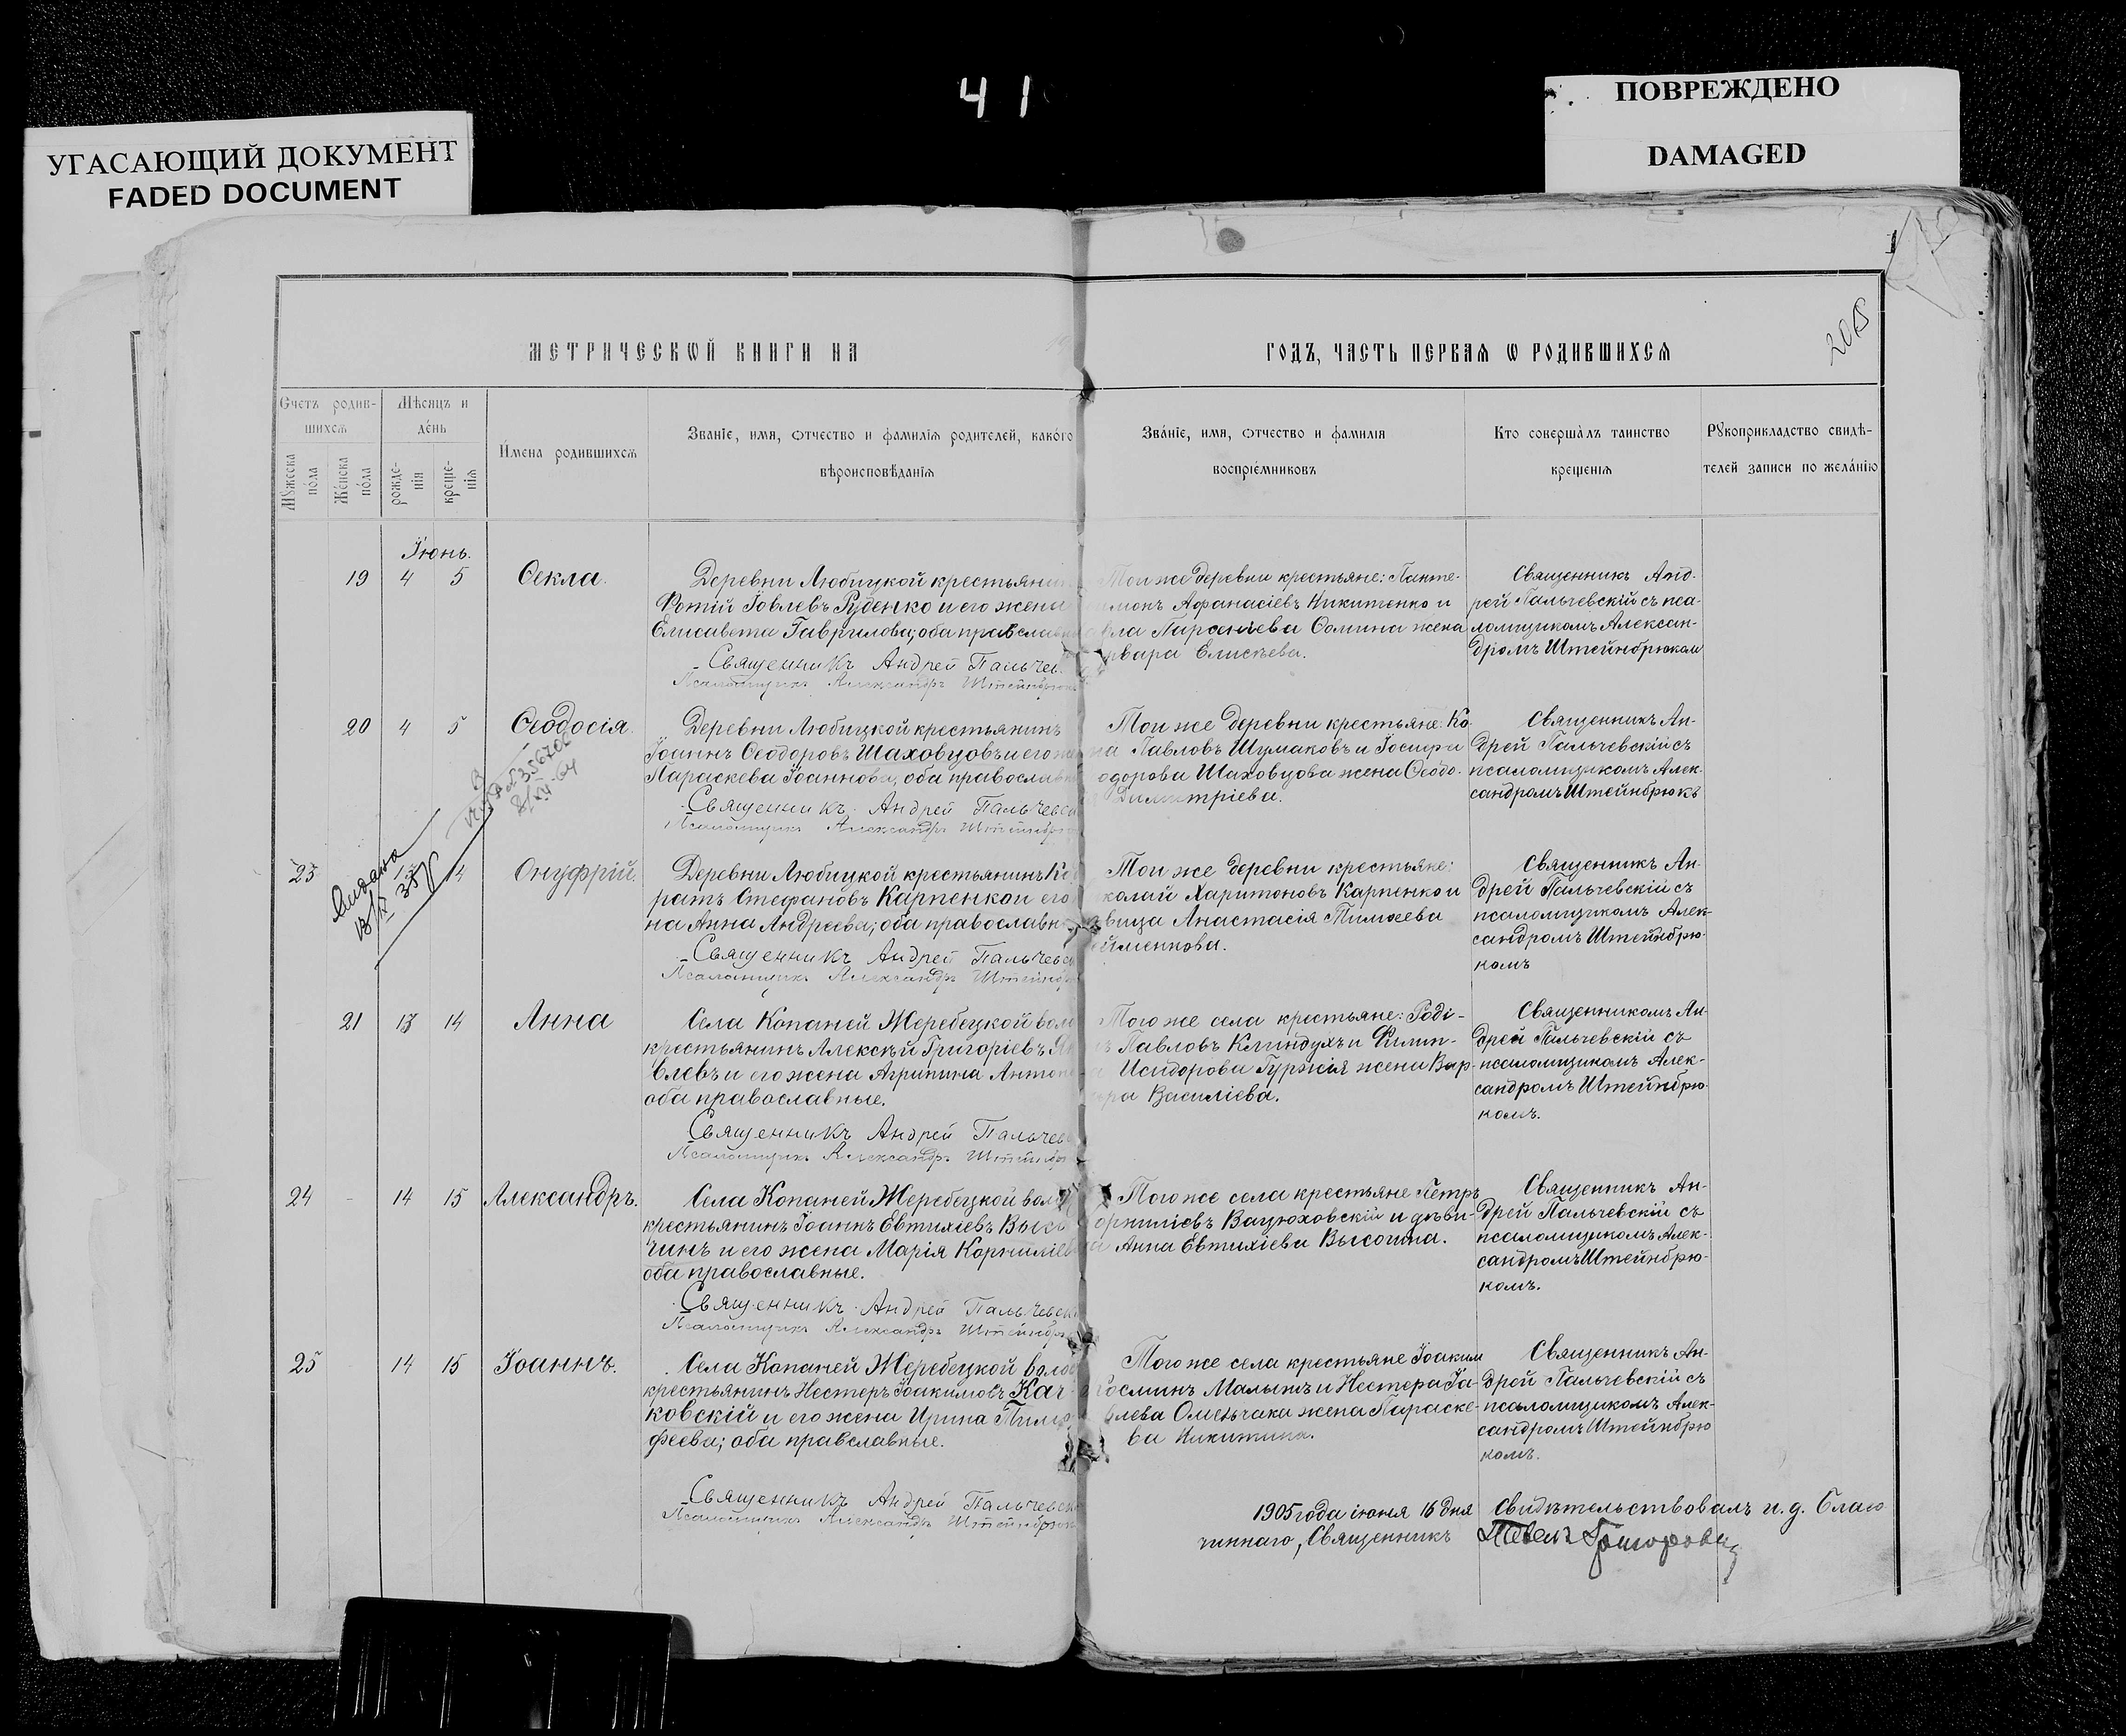 41
УГАСАЮЩИЙ ДОКУМЕНТ
FADED DOCUMENT
ПОВРЕЖДЕНО
DAMAGED
2015
МЕТРИЧЕСКѠЙ КНИГИ НА
ГОДЪ, ЧАСТЬ ПЕРВАѦ Ѡ РОДИВШИХСѦ
Счетъ родив-
шихсѧ
Мѣсяцъ и
де́нь
Мꙋжеска
по́ла
Же́нска
по́ла
рожде-
нія
креще-
нія
И́мена родившихсѧ
Званіе, имя, ѻтчество и фамилія родителей, како́го
вѣроисповѣданія
Зва́ніе, имя, ѻтчество и фамилія
воспріе́мниковъ
Кто соверша́лъ таинство
крещенія
Рꙋкоприкладство свидѣ-
телей записи по жела́нію
Іюнь.
19 4 5 Ѳекла.
Деревни Любицкой крестьянин
Фотій Іовлевъ Руденко и его жена
Елисавета Гаврилова; оба православн
Священникъ Андрей Пальчев
Псаломщикъ Александръ Штейнбрюк
Той же деревни крестьяне: Панте-
имонъ Афанасіевъ Никитенко и
Ѳомина жена
рвара Елисѣева.
Священникъ Анд-
рей Пальчевскій съ пса-
ломщикомъ Алексан-
дромъ Штейнбрюком
20 4 5 Ѳеодосія.
Деревни Любицкой крестьянинъ
Іоаннъ Ѳеодоровъ Шаховцовъ и его же
Параскева Іоаннова; оба православн
Священникъ Андрей Пальчевс
Псаломщикъ Александръ Штейнбрю
Той же деревни крестьяне: Ко-
на Павловъ Шумаковъ и Іосифа
одорова Шаховцова жена Ѳеодо-
Димитріева.
Священникъ Ан-
дрей Пальчевскій съ
псаломщикомъ Алек-
сандромъ Штейнбрюкъ
Выдана
23 Онуфрій.
Деревни Любицкой крестьянинъ Ко
ратъ Стефановъ Карпенко и его
на Анна Андреева; оба православн
Священникъ Андрей Пальчевс
Псаломщикъ Александръ Штейнбр
Той же деревни крестьяне:
колай Харитоновъ Карпенко и
вица Анастасія Пимаева
йменкова.
Священникъ Ан-
дрей Пальчевскій съ
псаломщикомъ Алек-
сандромъ Штейнбрю-
комъ
21 13 14 Анна
Села Копаней Жеребецкой воло
крестьянинъ Алексѣй Григоріевъ Як
влевъ и его жена Агрипина Антоно
оба православные.
Священникъ Андрей Пальчевс
Псаломщикъ Александръ Штейнбр
Того же села крестьяне: Роді-
ъ Павловъ Клиндухъ и Филип-
Исидорова Гуржія жена Вар-
ра Василіева.
Священникомъ Ан-
дрей Пальчевскій съ
псаломщикомъ Алек-
сандромъ Штейнбрю-
комъ.
24 - 14 15 Александръ.
Села Копаней Жеребецкой воло
крестьянинъ Іоаннъ Евтихіевъ Высо
чинъ и его жена Марія Корниліев
оба православные.
Священникъ Андрей Пальчевск
Псаломщикъ Александръ Штейнбр
Того же села крестьяне Петръ
орниліевъ Вацюховскій и дѣви-
ца Анна Евтихіева Высочина.
Священникъ Ан-
дрей Пальчевскій съ
псаломщикомъ Алек-
сандромъ Штейнбрю-
комъ.
25 14 15 Іоаннъ.
Села Копаней Жеребецкой воло
крестьянинъ Нестеръ Іоакимовъ Кач-
ковскій и его жена Ирина Тимо
феева; оба православные.
Священникъ Андрей Пальчевск
Псаломщикъ Александръ Штейнбрюк
Того же села крестьяне Іоаким
Косминъ Малышъ и Нестера Іа-
влева Омельчака жена Параске-
ва Никитина.
Священникъ Ан-
дрей Пальчевскій съ
псаломщикомъ Алек-
сандромъ Штейнбрю
комъ.
1905 года іюня 16 дня свидѣтельствовалъ и. д. Благо
чиннаго, Священникъ Павелъ Григоровичъ